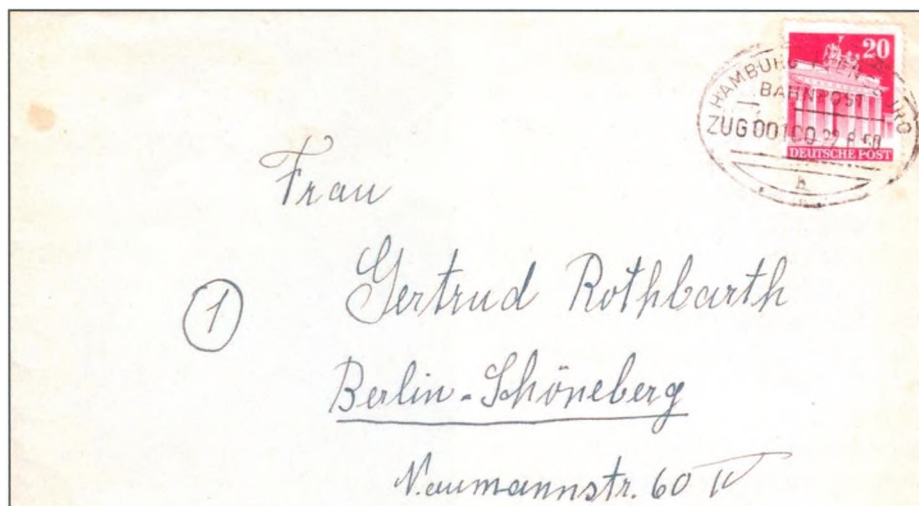 20
HAMBURG
BAHNPOST
ZUG 00100 22.8.50
DEUTSCHE POST
Frau
1
Gertrud Rothbarth
Berlin-Schöneberg
Naumannstr. 60 IV